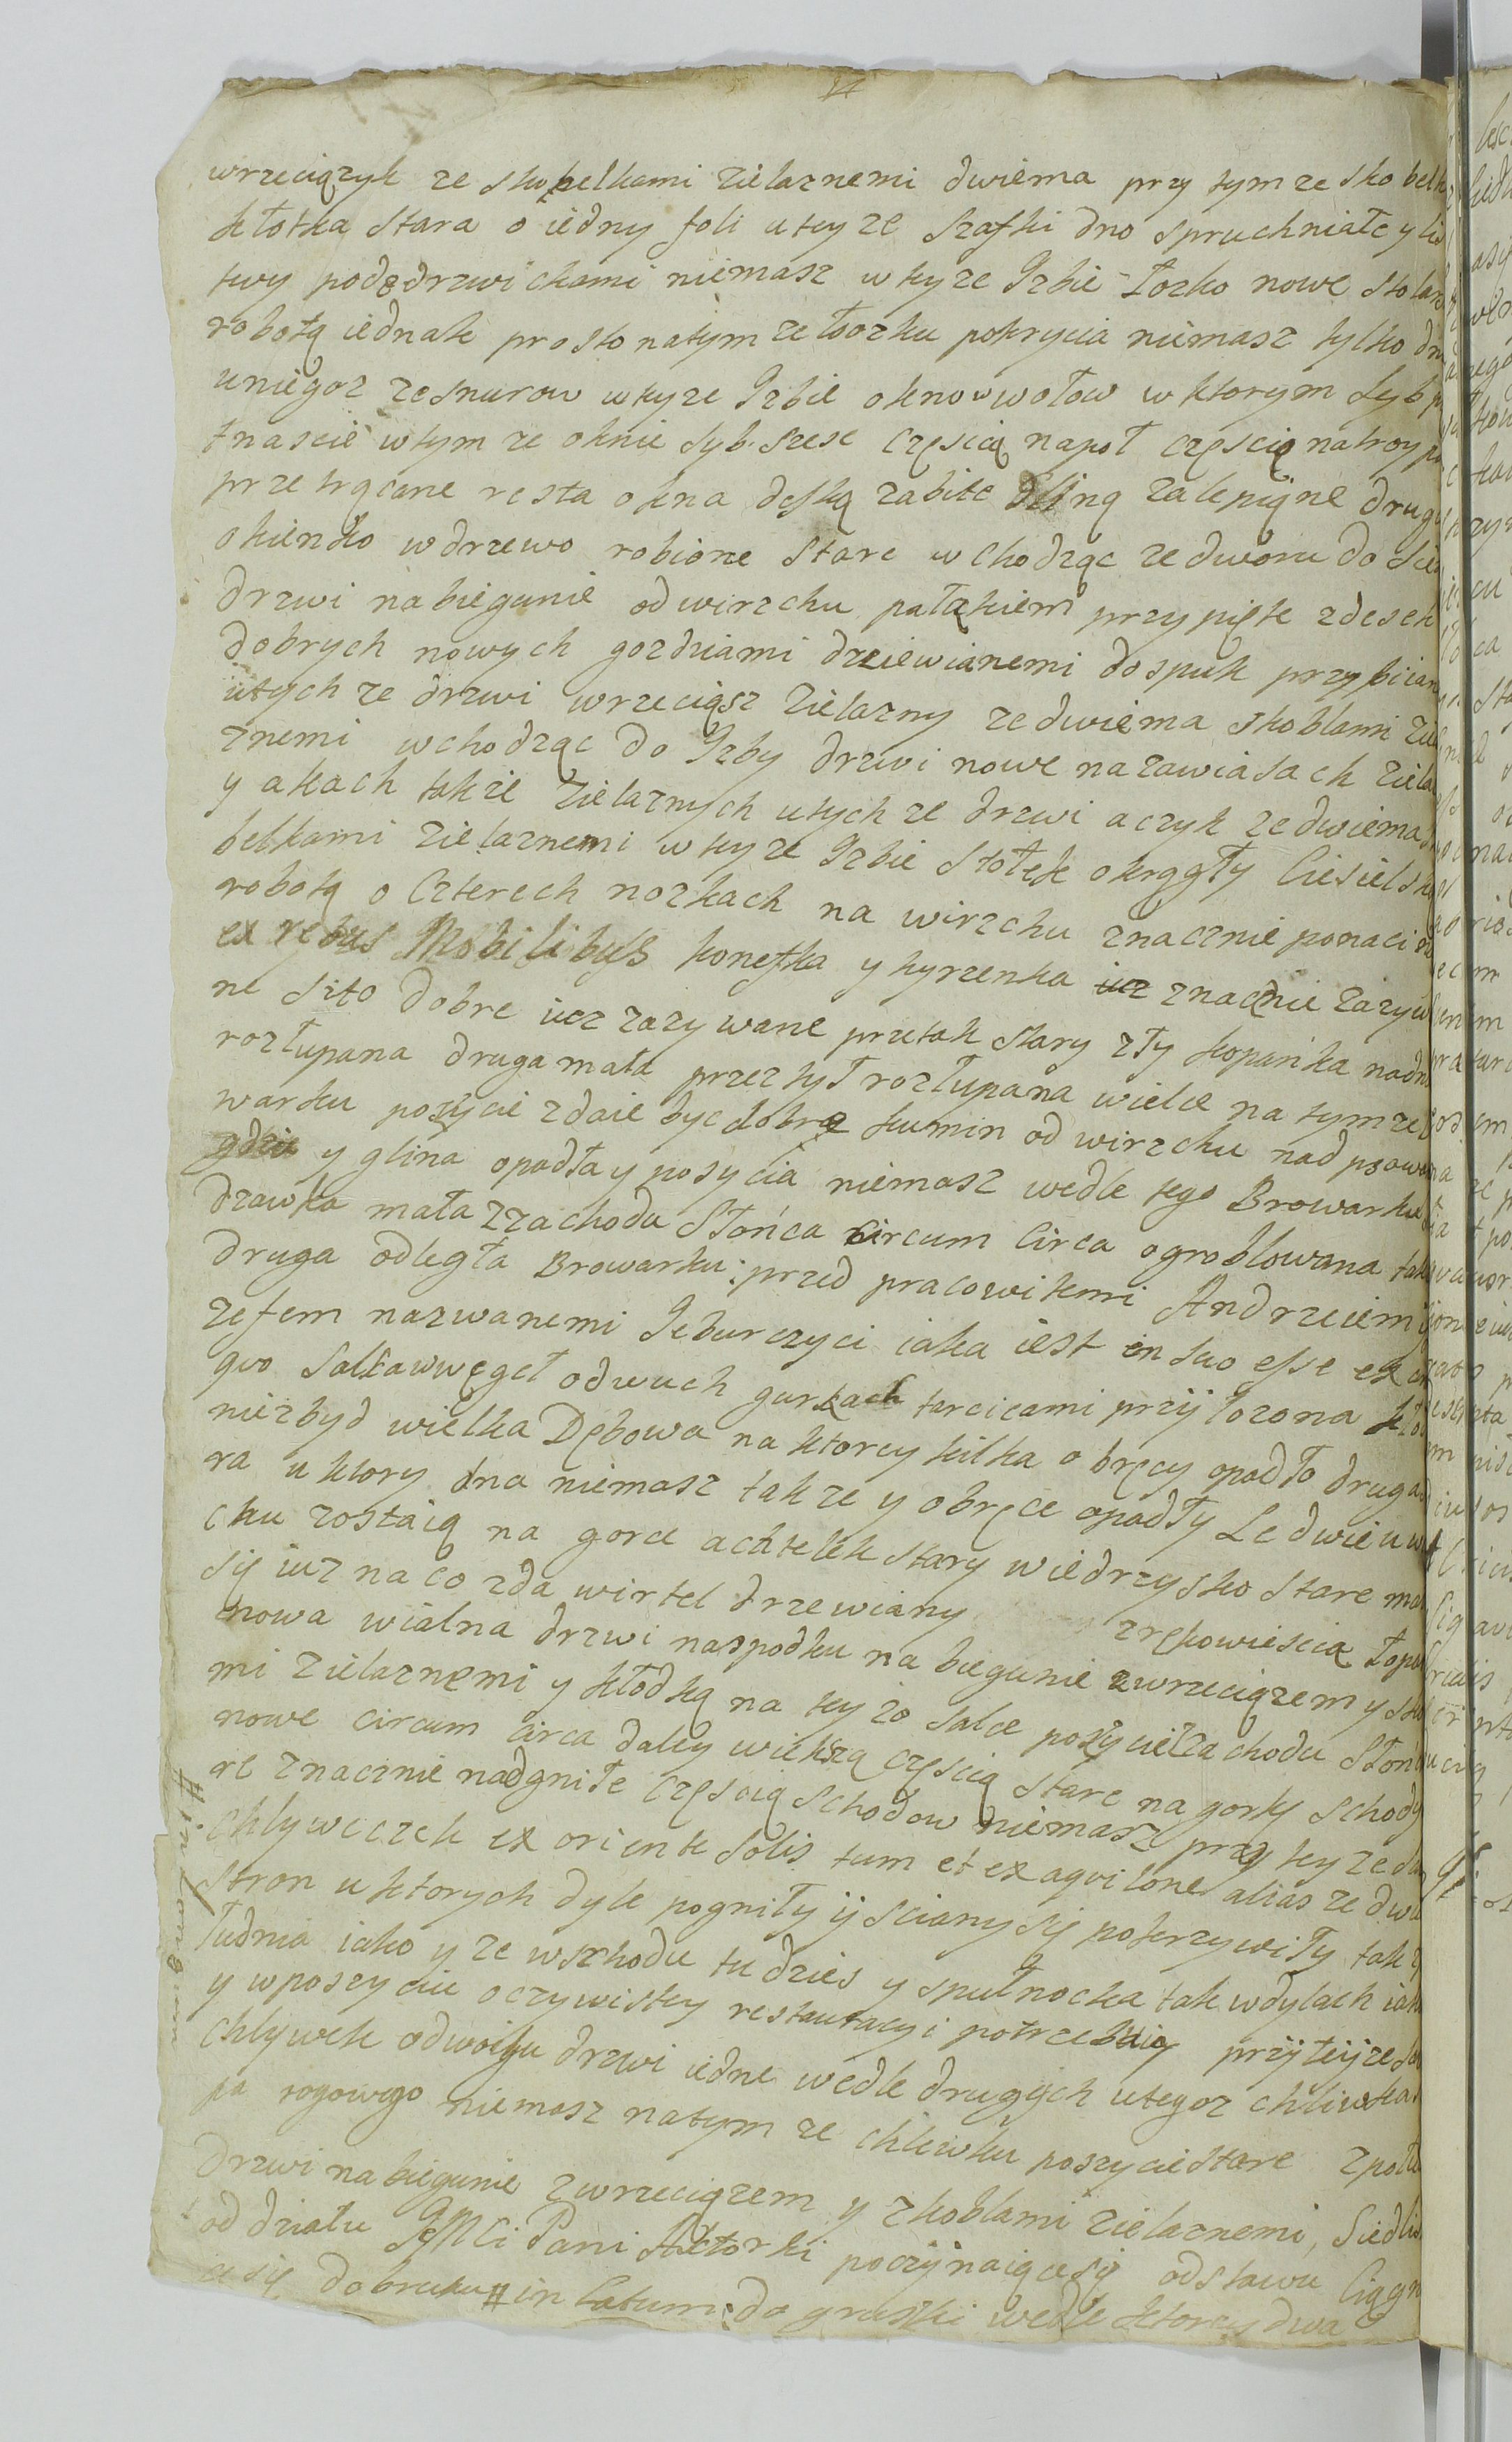 wrzeciązyk ze skobelkami zielaznemi dwiema przy tym ze skobelk
kłotka stara o iedny foli u teyze szafki dno spruchniałe y lis
twy pode drzwickami niemasz w teyze Izbie Łozko nowe stolar
robotą iednak prosto na tym ze łoozku pokrycia niemasz tylko
u niegoz ze snurow w teyze Izbie okno w wołow w ktorym syb
tnascie w tym ze oknie syb. szesc częscią na poł częscią na troy
przetrącane resta okna deską zabite gliną zalepiąne drugi
okienko w drzewo robione stare wchodząc ze dworu do sie
drzwi na biegunie od wirzchu pałąkiem przypięte z desek
dobrych nowych gozdziami drziewianemi do spuk przybiian
u tych ze drzwi wrzeciąsz zielazny ze dwiema skoblami ziel
znemi wchodząc do Izby drzwi nowe na zawiasach ziela
y akach takze zielaznych u tych ze drzwi aczyk ze dwiema
belkami zielaznemi w teyze Izbie stołek okrągły Ciesielską
robotą o czterech nozkach na wirzchu znacznie ponaci
ex rebus Mobilibus konefka y kyrzenka znacznie zazyw
ne sito dobre iuz zazywane przetak stary zły kopańka na dn
rozłupana druga mała przez tył rozłupana wielce na tym ze
warku poszycie zdaie byc dobre kumin od wirzchu nadpsowa
gdzie y glina opadła y posycia niemasz wedle tego Browarku
dzawka mała z zachodu Słońca circum Circa ogroblowana tak
druga odległa Browarku: przed pracowitemi Andrzeiem y
zefem nazwanemi Ieburczyci iaka iest in suo esse ex
quo Salka w węgeł o dwuch gurkach tarcicami przyłozona
niezbyd wielka Dębowa na ktorey kilka obręcy opadło druga
ra u ktory dna niemasz takze y obręce opadły Ledwie u w
chu zostaią na gorce achtelek stary wiedrzysko stare ma
się iuz na co zda wirtel drzewiany z rękowiescią Łopa
nowa wialna drzwi naspodku na biegunie z wrzeciązem y sko
mi zielaznemi y kłodką na teyzo salce poszycie z zachodu Słońc
nowe circum circa daley wiekszą częscią stare na gorky schody
re znacznie nadgniłe częscią schodow niemasz przy teyze sa
chlyweczek ex oriente Solis tum et ex aquilone alias ze dwu
stron u ktorych dyle pogniły ij sciany się pokrzywiły tak z
łudnia iako y ze wschodu tudzies y spułnocka tak w dylach iak
y w poszyciu oczywistey restauracyi potrzebuią przy teijze sa
chlywek o dwoygu drzwi iedne wedle drugijch u tegoz chliwka
pa rogowego niemasz na tym ze chlewku poszycie stare z połu
Drzwi na biegunie z wrzeciązem y zkoblami zielaznemi, Siedlis
od działu JeMCi Pani Aktorki poczynaiące się od stawu Ciągn
ce się do bruku # in Latum: do gruszki wedle ktorey dwa
# in Longum